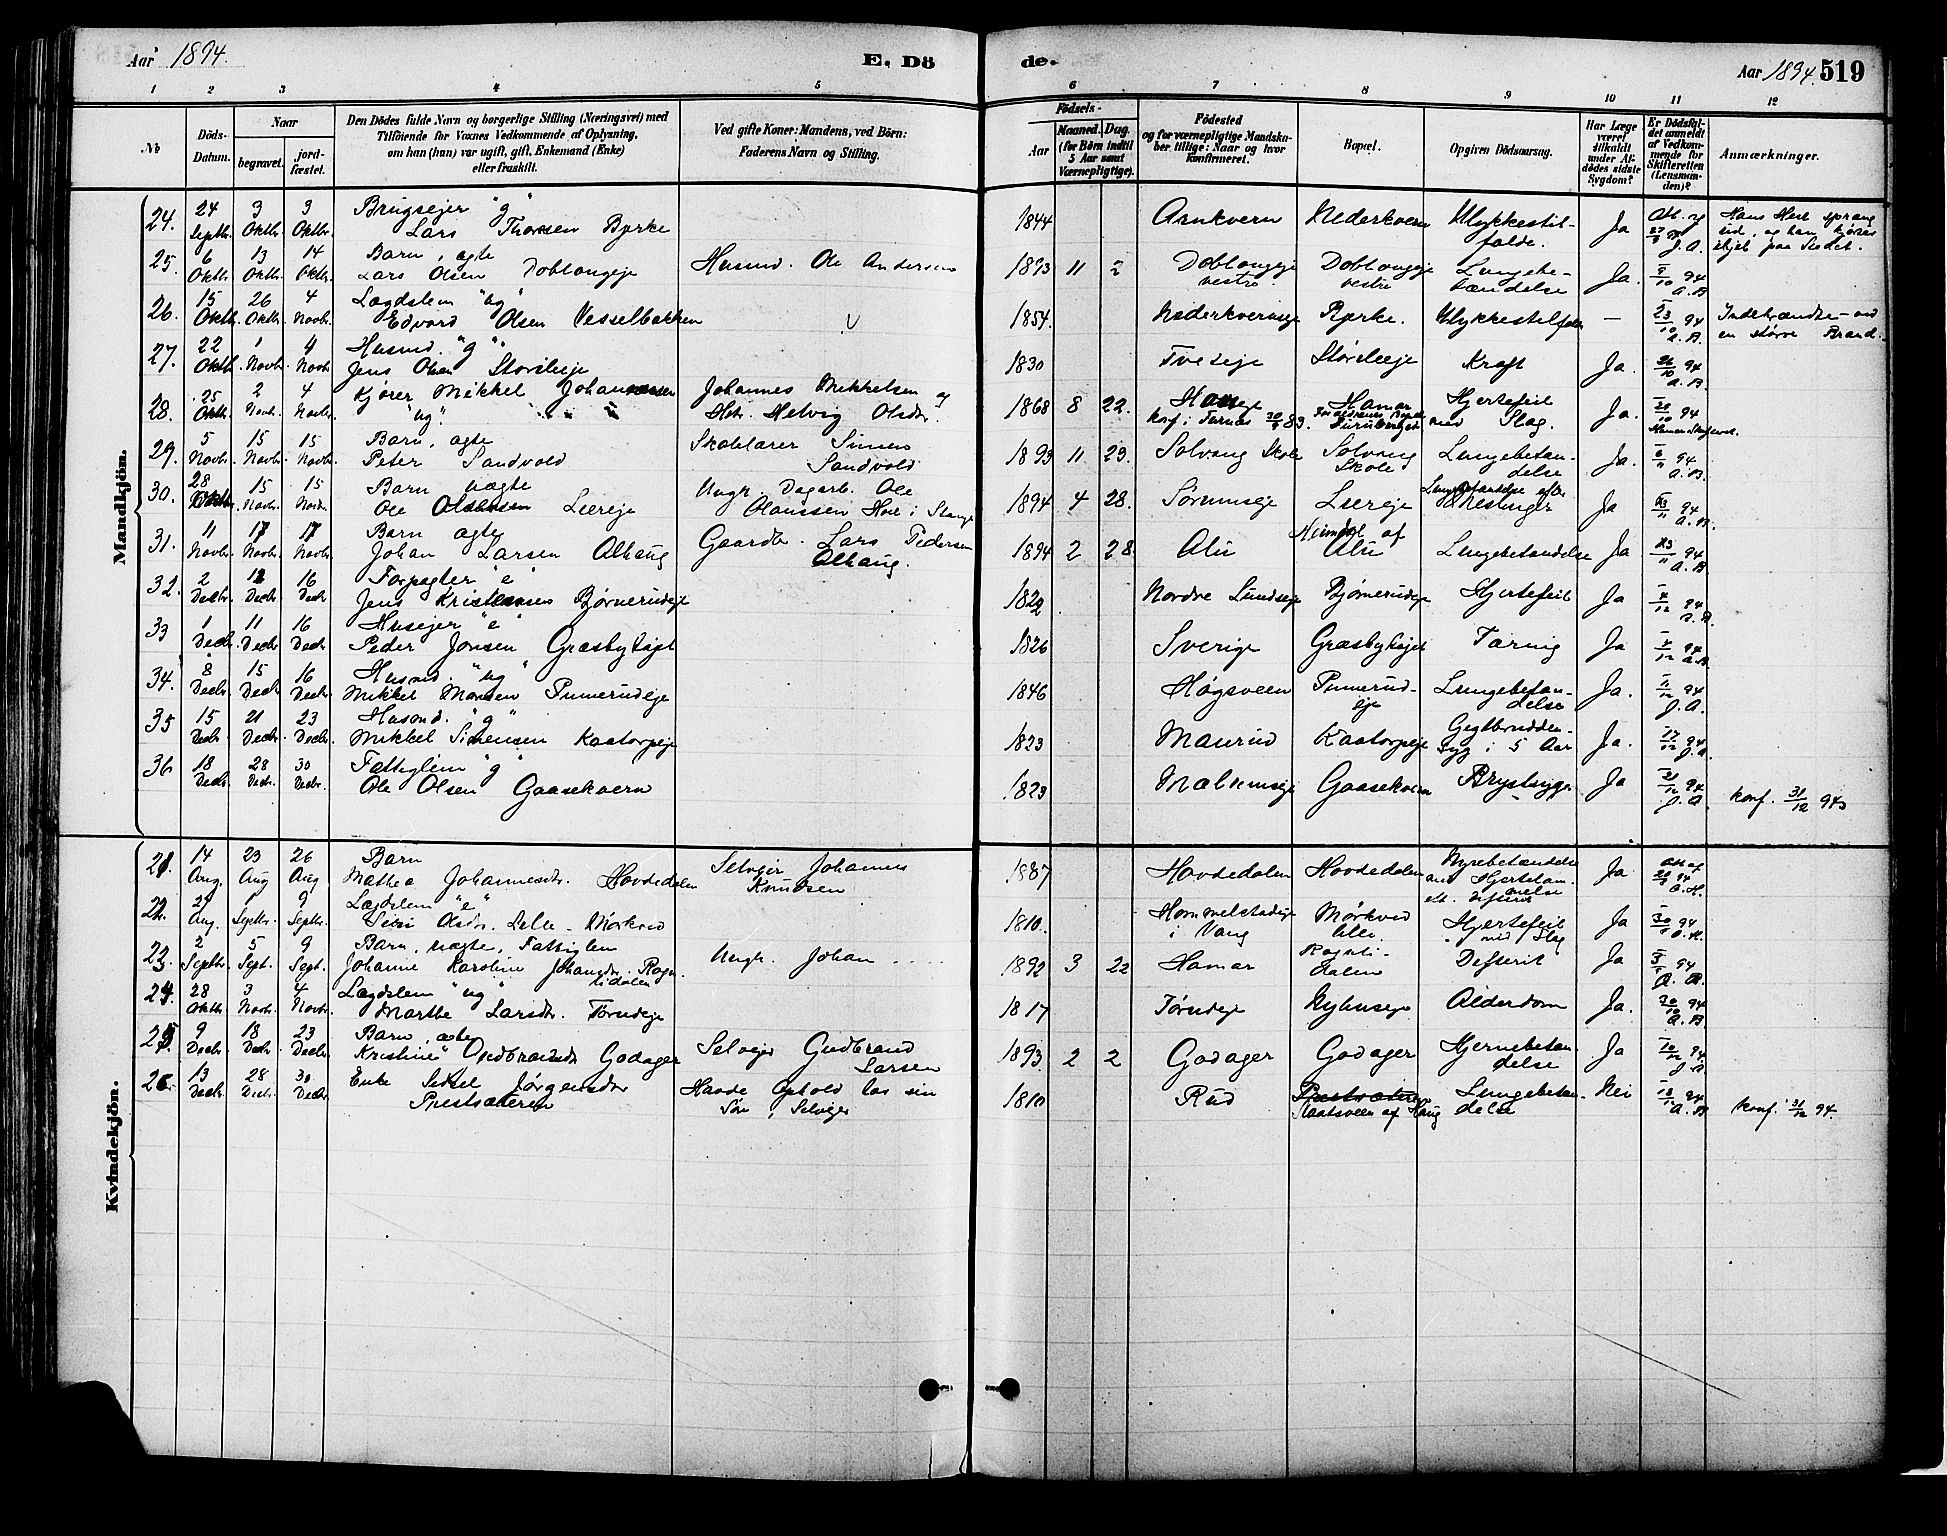 Aar 1894.
E. Dö
de.
Aar 1894. 519
1 2 3 4 5 6 7 8 9 10 11 12
No
Döds-Datum.
Naar
begravet.
jord-fæstet.
Den Dödes fulde Navn og borgerlige Stilling (Næringsvei) med
Tilföiende for Voxnes Vedkommende af Oplysning,
om han (hun) var ugift, gift, Enkemand (Enke)
eller fraskilt.
Ved gifte Koner: Mandens, ved Börn:
Faderens Navn og Stilling.
Födsels-
Aar
Maaned. Dag.
(for Börn indtil
5 Aar samt
Værnepligtige).
Födested
og for værnepligtige Mandska-
ber tillige: Naar og hvor
konfirmeret.
Bopæl.
Opgiven Dödsaarsag.
Har Læge
været
tilkaldt
under Af-
dödes sidste
Sygdom?
Er Dödsfal-
det anmeldt
af Vedkom-
mende for
Skifteretten
(Lensman-
den)?
Anmærkninger.
Mandkjön.
24. 24 Septbr. 3 Oktbr. 3 Oktbr. Brugsejer "g" Lars Thorsen Byrke 1844 Arnkvern Nederkvern Ulykkestilfælde. Ja
25. 6 Oktbr. 13 Oktbr. 14 Oktbr. Barn, ægte Lars Olsen Doblougeje Husmd. Ole Andersen 1893 11 2 Doblougeje vestre Doblougeje vestre Lungebetændelse Ja. 8/10 94 A.B
26. 15 Oktbr. 26 Oktbr. 4 Novbr. Lægdslem "ug" Edvard Olsen Vesselbakken 1854. Nederkverneje Byrke. Ulykkestilfælde — 23/10 94 A.B. Indebrændte ved en större Brand.
27. 22 Oktbr. 1 Novbr. 4 Novbr. Husmd. "g" Jens Olsen Storsleeje 1830 Tveseje Storsleeje Kræft Ja. 26/10 94 A.B
28. 25 Oktbr. 2 Novbr. 4 Novbr. Kjörer Mikkel Johannessen "ug". Johannes Mikkelsen og Hst. Helvig Olsdr. 1868 8 22. konf. i Furnæs 30/9 83. Hamar Hjertefeil med Slag. Ja. 30/10 94
29. 5 Novbr. 15 Novbr. 15 Novbr. Barn, ægte Peter Sandvold Skolelærer Simen Sandvold 1893 11 23. Solvang Skole Solvang Skole Lungebetændelse Ja. 6/11 94 A.B
30. 28 Oktbr. 15 Novbr. 15 Novbr. Barn uægte Ole Olsen Liereje Ungk. Dagarb. Ole Olaussen Hoel i Stange 1894 4 28. Sörumseje Liereje Lungebetændelse efter Mæslinger Ja 13/11 94 A.B.
31. 11 Novbr. 17 Novbr. 17 Novbr. Barn ægte Johan Larsen Alhaug Gaardbr. Lars Pedersen Alhaug. 1894 2 28. Alu Heimdal af Alu Lungebetændelse Ja 13/11 94 A.B
32. 2 Decbr. 12 Decbr. 16 Decbr. Forpagter "e" Jens Kristiansen Björnerudeje 1822 Nordre Lundseje Björnerudeje Hjertefeil Ja 4/12 94
33 1 Decbr. 11 Decbr. 16 Decbr. Husejer "e" Peder Jonsen Græsbyhöjet 1826 Sverige Græsbyhöjet Tæring Ja 4/12 94 A.B
34. 8 Decbr. 15 Decbr. 16 Decbr. Husmd. "ug" Mikkel Monsen Pumerudeje 1846 Högsveen Pumerudeje Lungebetændelse Ja. 11/12 94 J.A.
35 15 Decbr. 21 Decbr. 23 Decbr. Husmd. "g" Mikkel Simensen Kaatorpeje 1823 Maurud Kaatorpeje Gigtbrudden syg i 5 Aar Ja. 17/12 94
36 18 Decbr. 28 Decbr. 30 Decbr. Fattiglem "g" Ole Olsen Gaasekvern 1823 Mælumseje Gaasekvern Brystsyge Ja 21/12 94 J.A konf. 31/12 94
Kvindekjön.
21 14 Aug. 23 Aug 26 Aug Barn Mathea Johannesdr. Hovdedalen Selvejer Johannes Knudsen 1887 Hovdedalen Hovdedalen Nyrebetændelse Ja
22. 29 Aug. 7 Septbr. 9 Septbr. Lægdslem "e" Siri Olsdr. Lille-Mörkved 1810. Hommelstadeje i Vang Mörkved lille. Hjertefeil med Slag Ja 30/8 94
23. 2 Septbr. 5 Sept. 9 Sept. Barn, uægte, Fattiglem Johanne Karoline Johansdr. Rognlidalen Ungk. Johan .... 1892 3 22 Hamar Rognlidalen Difterit Ja
24. 28 Oktbr. 3 Novbr. 4 Novbr. Lægdslem "ug" Marthe Larsdr. Törudeje 1817 Törudeje Nyhuseje Alderdom Ja. 30/10 94 A.B
25. 9 Decbr. 18 Decbr. 23 Decbr. Barn ægte Kristine Gudbrandsdr Godager Selvejer Gudbrand Larsen 1893. 2 2 Godager Godager Hjernebetændelse Ja 10/12 94 J.A
26. 13 Decbr. 28 Decbr. 30 Decbr. Enke Sidsel Jörgensdr Prestsæteren Havde Ophold hos sin Sön, Selvejer 1810 Rud Prestsæteren Staatsveen af Haug Lungebetændelse Nei 18/12 94 A.B konf. 31/12 94.